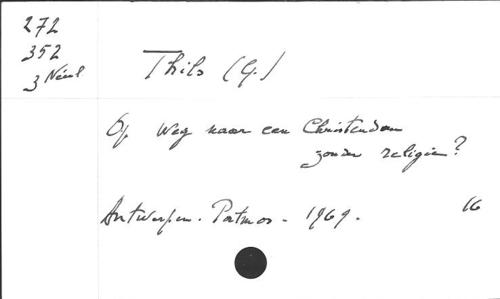 272
352
3 Néerl
Thils (G.)
Op Weg naar een Christendom
zonder religie?
Antwerpen. Patmos - 1969.
16